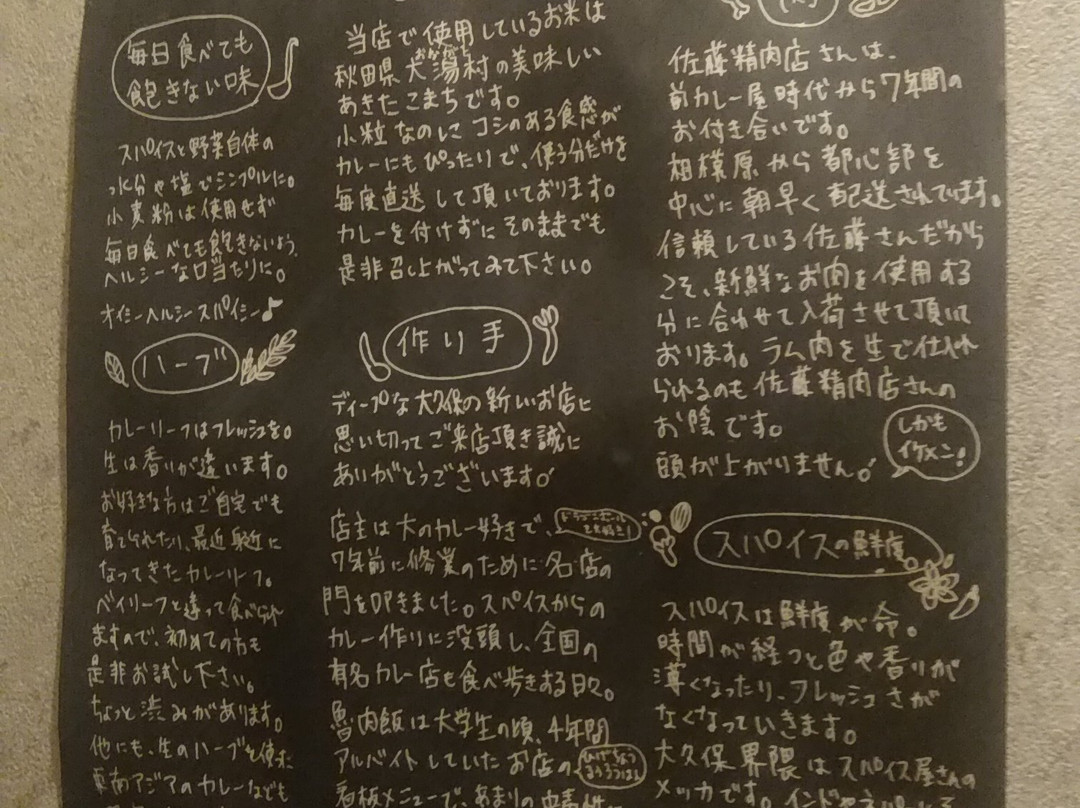 毎日食べても
飽きない味
スパイスと野菜自体の
水分や塩でシンプルに。
小麦粉は使用せず
毎日食べても飽きないよう、
ヘルシーな口当たりに。
オイシーヘルシースパイシー♪
ハーブ
カレーリーフはフレッシュを。
生は香りが違います。
お好きな方はご自宅でも
育てられたり、最近身近に
なってきたカレーリーフ。
ベイリーフと違って食べられ
ますので、初めての方も
是非お試し下さい。
ちょっと渋みがあります。
他にも、生のハーブを使った
東南アジアのカレーなども
当店で使用しているお米は
秋田県大潟村の美味しい
あきたこまちです。
小粒なのにコシのある食感が
カレーにもぴったりで、使う分だけを
毎度直送して頂いております。
カレーを付けずにそのままでも
是非召し上がってみて下さい。
作り手
ディープな大久保の新しいお店に
思い切ってご来店頂き誠に
ありがとうございます!
店主は大のカレー好きで、
ドラゴンボール
も大好き!
7年前に修業のために名店の
門を叩きました。スパイスからの
カレー作りに没頭し、全国の
有名カレー店を食べ歩きする日々。
魯肉飯は大学生の頃、4年間
アルバイトしていたお店の
看板メニューで、あまりの中毒性に
肉
佐藤精肉店さんは、
前カレー屋時代から7年間の
お付き合いです。
相模原から都心部を
中心に朝早く配送されています。
信頼している佐藤さんだから
こそ、新鮮なお肉を使用する
分に合わせて入荷させて頂いて
おります。ラム肉を生で仕入れ
られるのも佐藤精肉店さんの
お陰です。
頭が上がりません!
しかも
イケメン!
スパイスの鮮度
スパイスは鮮度が命。
時間が経つと色や香りが
薄くなったり、フレッシュさが
なくなっていきます。
大久保界隈はスパイス屋さんの
メッカです。